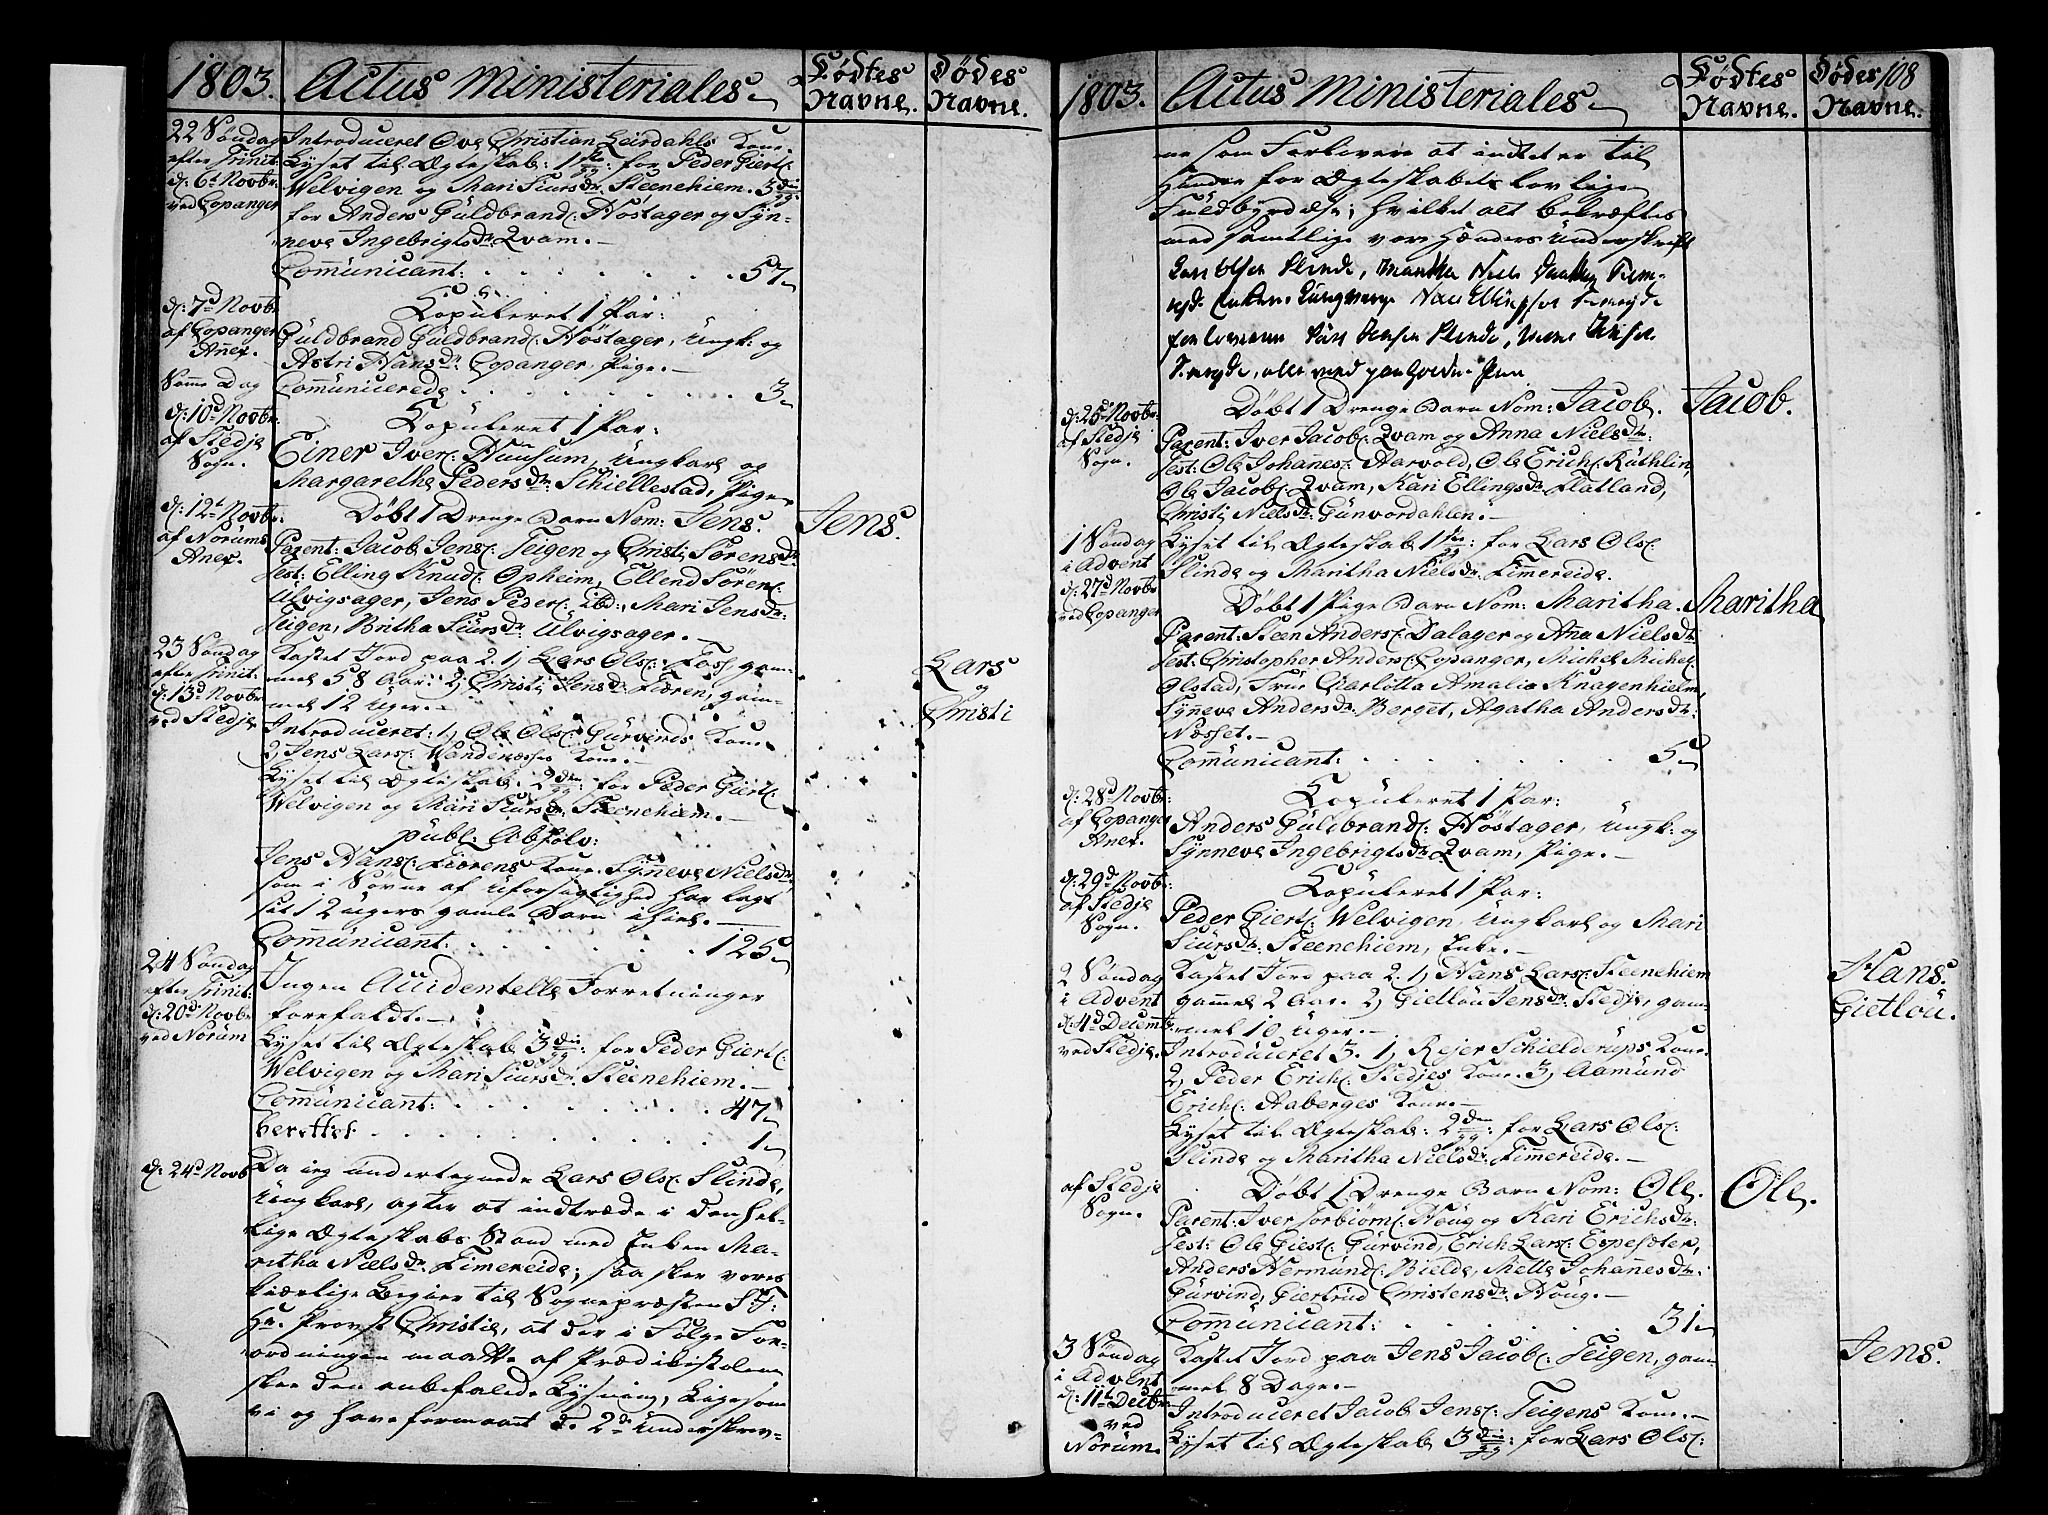 1803. Actus Ministeriales. Födtes Navne. Dödes Navne.
22 Søndag efter Trinit: d: 6t Novbr ved Copanger
Introduceret Ove Christian Leirdahls Kone.
Lyset til Ægteskab: 1ste gg: for Peder Giertß:
Welvigen og Mari Siursdr: Steenehiem. 3die gg:
for Anders Guldbrandß: Höstager og Syn-
neve Ingebrigtsdr: Qvam.
Communicant: 57
d: 7d Novbr af Copanger Anex.
Kopuleret 1 Par:
Guldbrand Guldbrandß: Höstager, Ungk: og
Astri Hansdr: Copanger, Pige.
Samme Dag
Communicerede 3
d: 10d Novbr. af Stedje Sogn.
Kopuleret 1 Par:
Einer Iverß: Ungkarl og
Margaretha Pedersdr: Schiellestad, Pige
d: 12t Novbr: af Norums Anex.
Döbt 1 Drenge Barn Nom: Jens. Jens.
Parent: Jacob Jensß: Teigen og Christi Sörensdr
Test: Elling Knudß: Opheim, Ellend Sörenß:
Ulvigsager, Jens Pederß: ibd:, Mari Jensdr:
Teigen, Britha Siursdr: Ulvigsager.
23 Søndag efter Trinit: d: 13d Novbr ved Stedje
Kastet Jord paa 2. 1) Lars Olsß: Foss, gam- Lars
mel 58 Aar. 2) Christi Jensdr: Fieren, gam- og
mel 12 Uger. Christi
Introduceret: 1) Ole Olsß: Gurvinds Kone
2) Jens Larsß: Kone.
Lyset til Ægteskab: 2den gg: for Peder Giertß:
Welvigen og Mari Siursdr: Steenehiem.
publ: Absolv:
Jens Hansß: Fierens Kone Synneve Nielsdr
som i Søvne af Uforsigtighed har lagt
sit 12 Ugers gamle Barn ihiel.
Communicant: 125
24 Søndag efter Trinit: d: 20d Novbr ved Norum
Ingen Accidentelle Forretninger
forefaldt.
Lyset til Ægteskab 3die gg: for Peder Giertß:
Welvigen og Mari Siursdr: Steenehiem.
Communicant: 47
berettet 1
d: 24d Novb
Da jeg undertegnede Lars Olsß: Slinde,
Ungkarl, agter at indtræde i den hel-
lige Ægteskabs Stand med Enken Ma-
ritha Nielsdr: Fimereide; saa sker vores
kiærlige Begier til Sognepræsten S:T:
Hr. Provst Christie, at der i Følge For-
ordningen maatte af Prædikestolen
skee den anbefalede Lysning, Ligesom
vi og have formaaet de 2de Underskrev-
1803. Actus Ministeriales. Födtes Navne. Dödes Navne. 108
ne som Forlovere at intet er til
Hinder for Ægteskabets lovlige
Fuldbyrdelse; hvilket alt bekræftes
med samtlige vore Hænders Underskrift
Lars Olsen Slinde, Maritha Niels Daatter Fim-
forloverne Lars Jensen Slinde,
d: 25d Novbr. af Stedje Sogn.
Döbt 1 Drenge Barn Nom: Jacob. Jacob.
Parent: Iver Jacobß: Qvam og Anna Nielsdr:
Test: Ole Johanesß: Aarvold, Ole Erichß: Rutlin,
Ole Jacobß: Qvam, Kari Ellingsdr: Flatland,
Christi Nielsdr: Gunvordahlen.
1 Søndag i Advent d: 27d Novbr ved Copanger
Lyset til Ægteskab 1ste gg: for Lars Olsß:
Slinde og Maritha Nielsdr: Fimmereide.
Döbt 1 Pige Barn Nom: Maritha. Maritha
Parent: Steen Andersß: Dalager og Anna Nielsdr
Test: Christopher Andersß: Copanger, Michel Michelß:
Olstad, Frue Charlotta Amalia Knagenhielm,
Synneve Andersdr: Berget, Agatha Andersdr:
Næsset.
Communicant: 5
d: 28d Novbr: af Copanger Anex.
Kopuleret 1 Par:
Anders Guldbrandß: Höstager, Ungk: og
Synneve Ingebrigtsdr: Qvam, Pige.
d: 29d Novbr: af Stedje Sogn.
Kopuleret 1 Par:
Peder Giertß: Welvigen, Ungkarl og Mari
Siursdr: Steenehiem, Enke.
2 Søndag i Advent d: 4d Decembr ved Stedje.
Kastet Jord paa 2. 1) Hans Larsß: Steenehiem Hans.
gammel 2 Aar. 2) Gietlou Jensdr: Stedje, gam- Gietlou.
mel 10 Uger.
Introduceret 3. 1) Rejer Schielderups Kone.
2) Peder Erichß: Stedjes Kone. 3) Aamund
Erichß: Aaberges Kone.
Lyset til Ægteskab: 2den gg: for Lars Olsß:
Slinde og Maritha Nielsdr: Fimmereide.
af Stedje Sogn.
Döbt 1 Drenge Barn Nom: Ole. Ole.
Parent: Iver Torbiörnß: Houg og Kari Erichsdr:
Test: Ole Giestß: Gurvind, Erich Larsß: Espesæter,
Anders Hermundß: Bielde, Mette Johanesdr:
Gurvind, Giertrud Christensdr: Houg.
Communicant: 31
3 Søndag i Advent d: 11t Decbr ved Norum.
Kastet Jord paa Jens Jacobß: Teigen, gam- Jens.
mel 8 Dage.
Introduceret Jacob Jensß: Teigens Kone.
Lyset til Ægteskab 3die gg: for Lars Olsß: